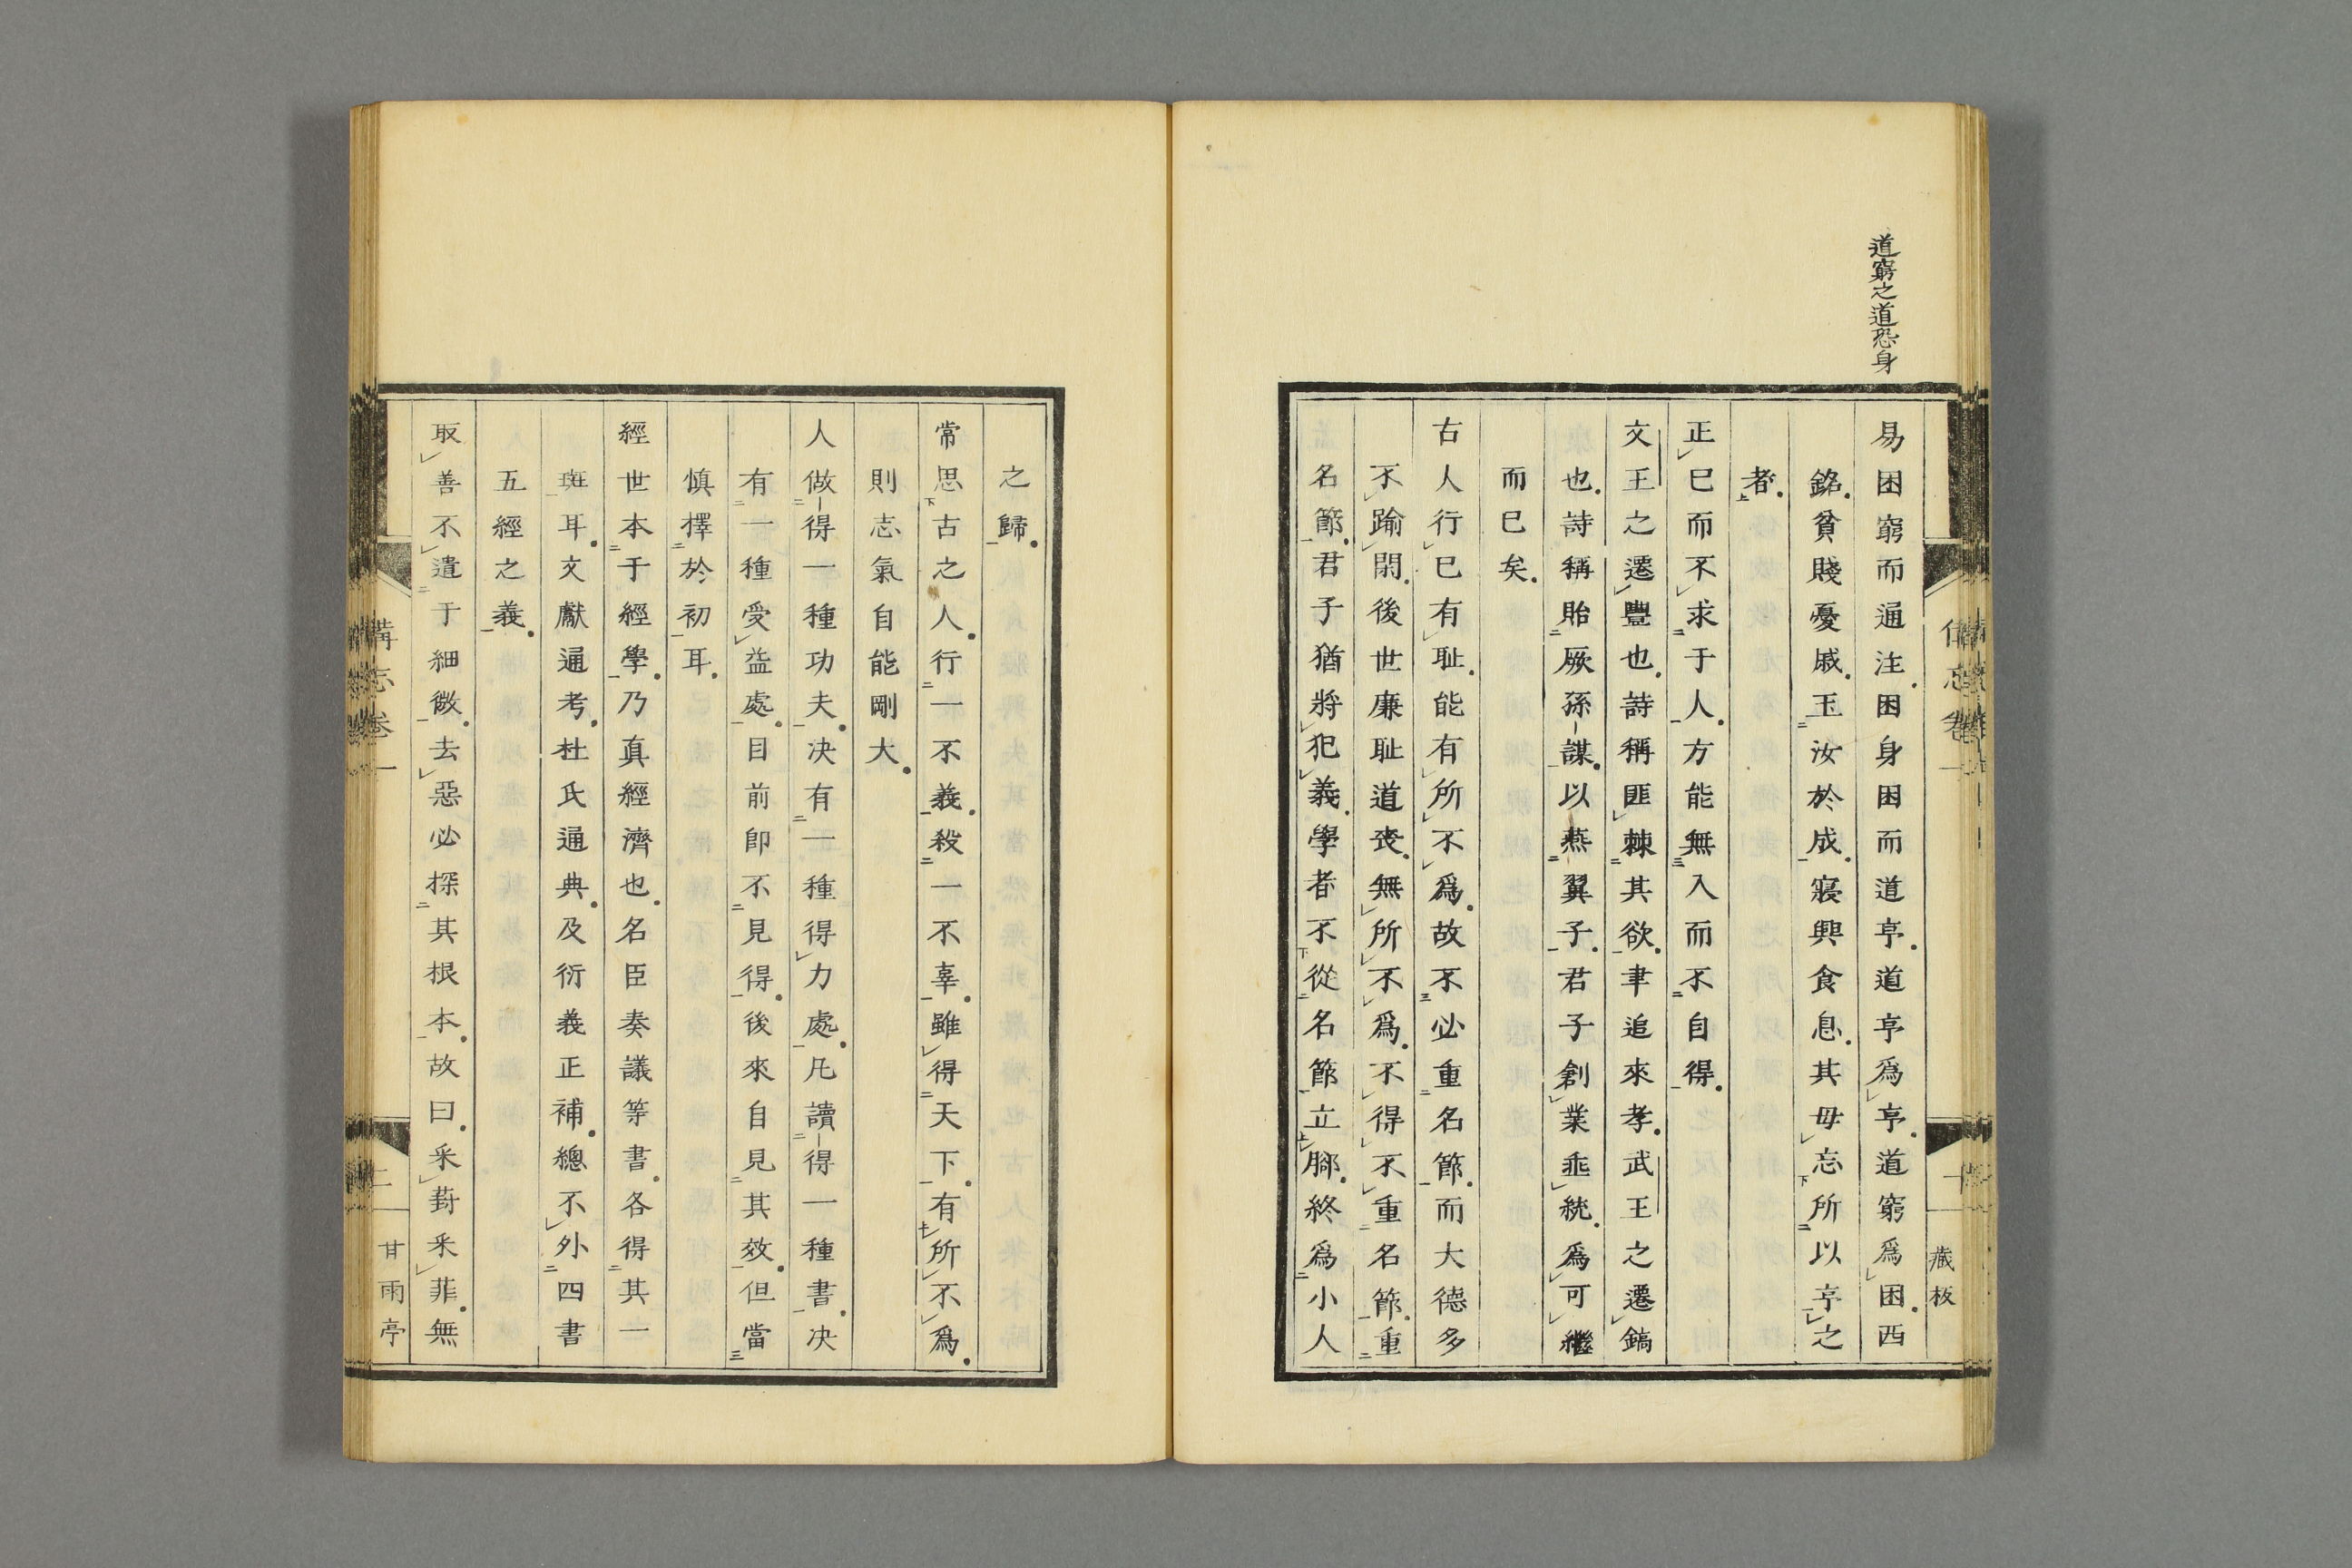 道窮之道恐身
易困窮而通注困身困而道亨道亨爲亨道窮爲困西
銘貧賤憂戚玉汝於成寢興食息其毋忘所以亨之
者
正己而不求于人方能無入而不自得
文王之遷豐也詩稱匪棘其欲聿追來孝武王之遷鎬
也詩稱貽厥孫謀以燕翼子君子創業垂統爲可繼
而已矣
古人行己有耻能有所不爲故不必重名節而大德多
不踰閑後世廉耻道喪無所不爲不得不重名節重
名節君子猶將犯義學者不從名節立腳終爲小人
之歸
常思古之人行一不義殺一不辜雖得天下有所不爲
則志氣自能剛大
人做得一種功夫決有一種得力處凡讀得一種書決
有一種受益處目前卽不見得後來自見其效但當
慎擇於初耳
經世本于經學乃真經濟也名臣奏議等書各得其一
斑耳文獻通考杜氏通典及衍義正補總不外四書
五經之義
取善不遺于細微去惡必探其根本故曰采葑采菲無
備忘卷一
二
藏板
甘雨亭